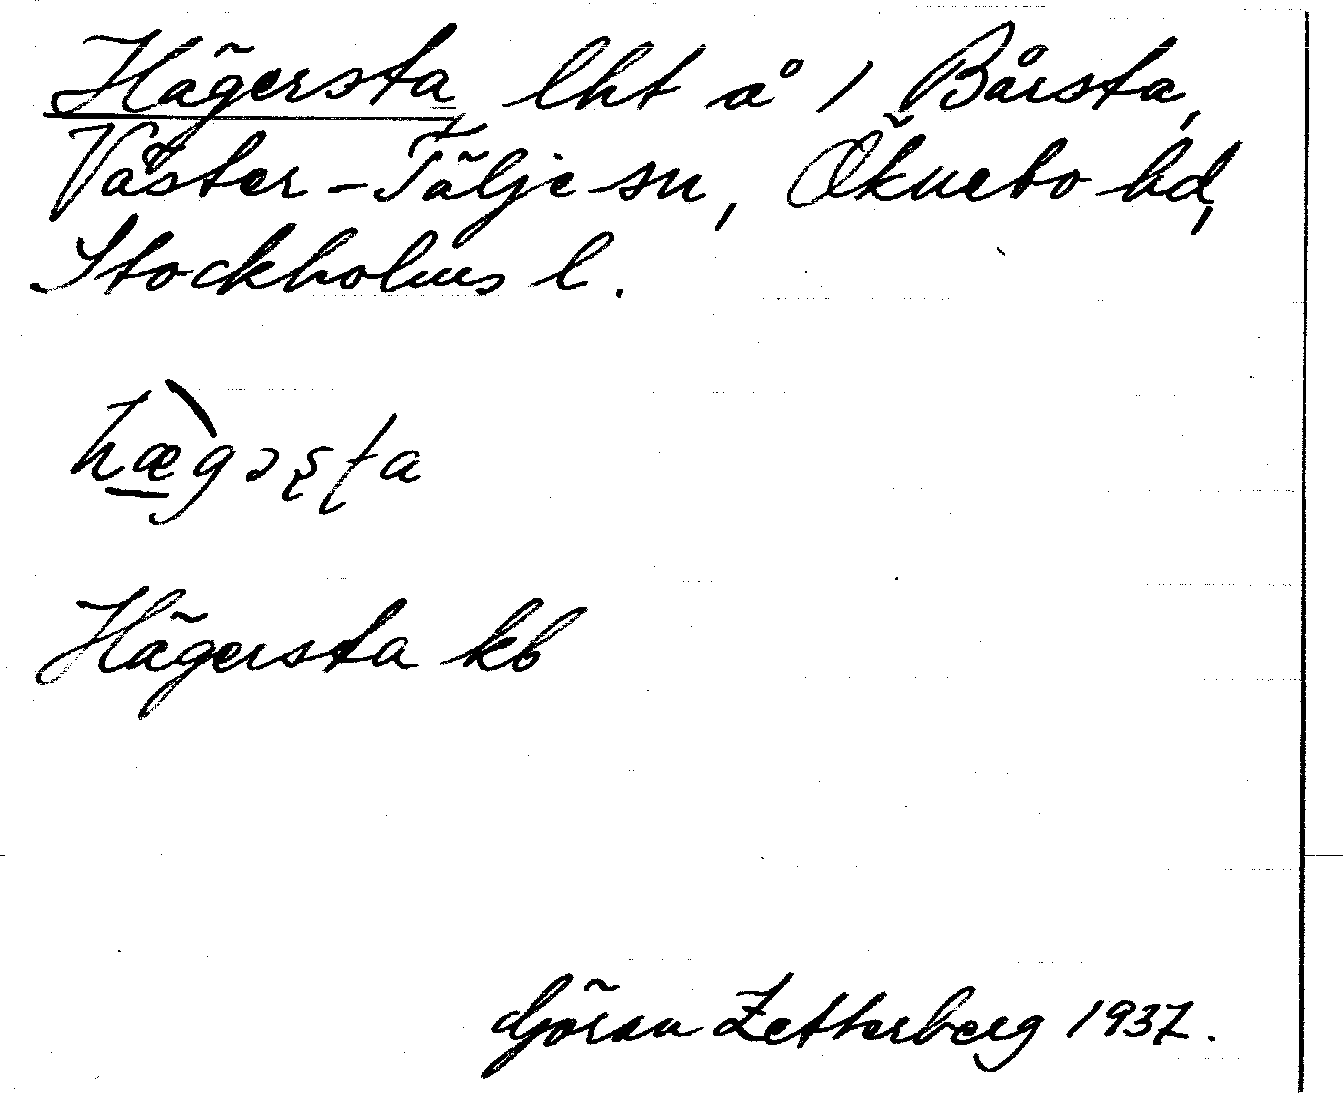 Hägersta lht å 1 Bårsta,
Väster-Tälje sn, Öknebo hd,
Stockholms l.
hæ̲̀gəʂʈa
Hägersta kb
Göran Zetterberg 1937.